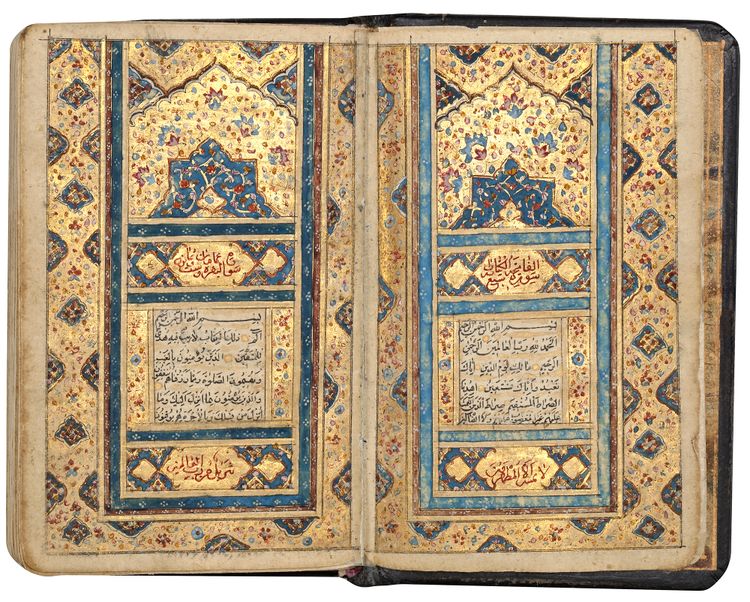 بسم الله الرحمن الرحيم
الحمد لله رب العالمين الرحمن
الرحيم مالك يوم الدين اياك
نعبد واياك نستعين اهدنا
الصراط المستقيم صراط الذين انعمت
عليهم غير المغضوب عليهم ولا الضالين
لا يمسه الا المطهرون
بسم الله الرحمن الرحيم
الم ذلك الكتاب لا ريب فيه هدى
للمتقين الذين يؤمنون بالغيب
ويقيمون الصلوة ومما رزقناهم ينفقون
والذين يؤمنون بما انزل اليك وما
انزل من قبلك وبالاخرة هم يوقنون
تنزيل من رب العالمين